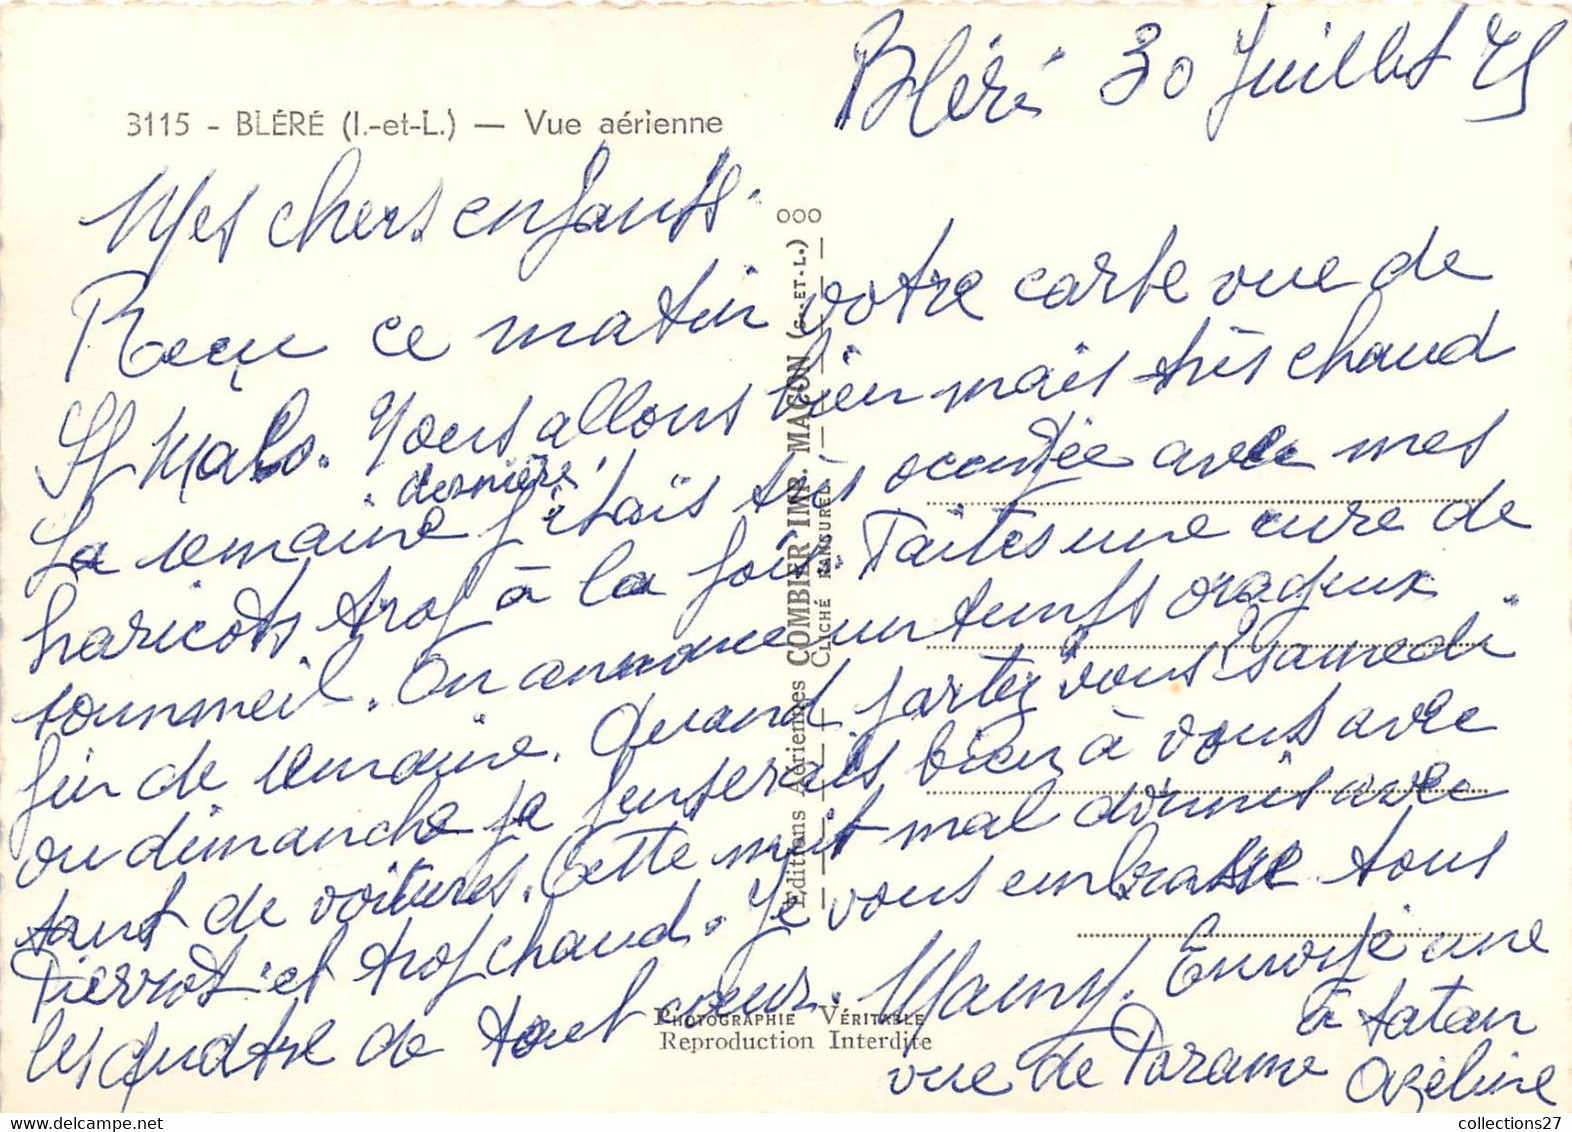 Bléré 30 Juillet 75
3115 - BLÉRÉ (I.-et-L.) — Vue aérienne
Mes chers enfants.
Reçu ce matin votre carte vue de
St Malo. Nous allons bien mais très chaud
dernière
La semaine j'étais très occupée avec mes
haricots trop à la fois. Faites une cure de
sommeil. On annonce un temps orageux
fin de semaine. Quand partez vous? samedi
ou dimanche je penserais bien à vous avec
tant de voitures. Cette nuit mal dormis avec
Pierrot et trop chaud. Je vous embrasse tous
les quatre de tout cœur. Mamy. Envoyé une
vue de Parame à tatan
Azeline
Editions Aériennes COMBIER IMP. MACON (S.-ET-L.)
CLICHÉ RANSUREL
PHOTOGRAPHIE VÉRITABLE
Reproduction Interdite
collections27